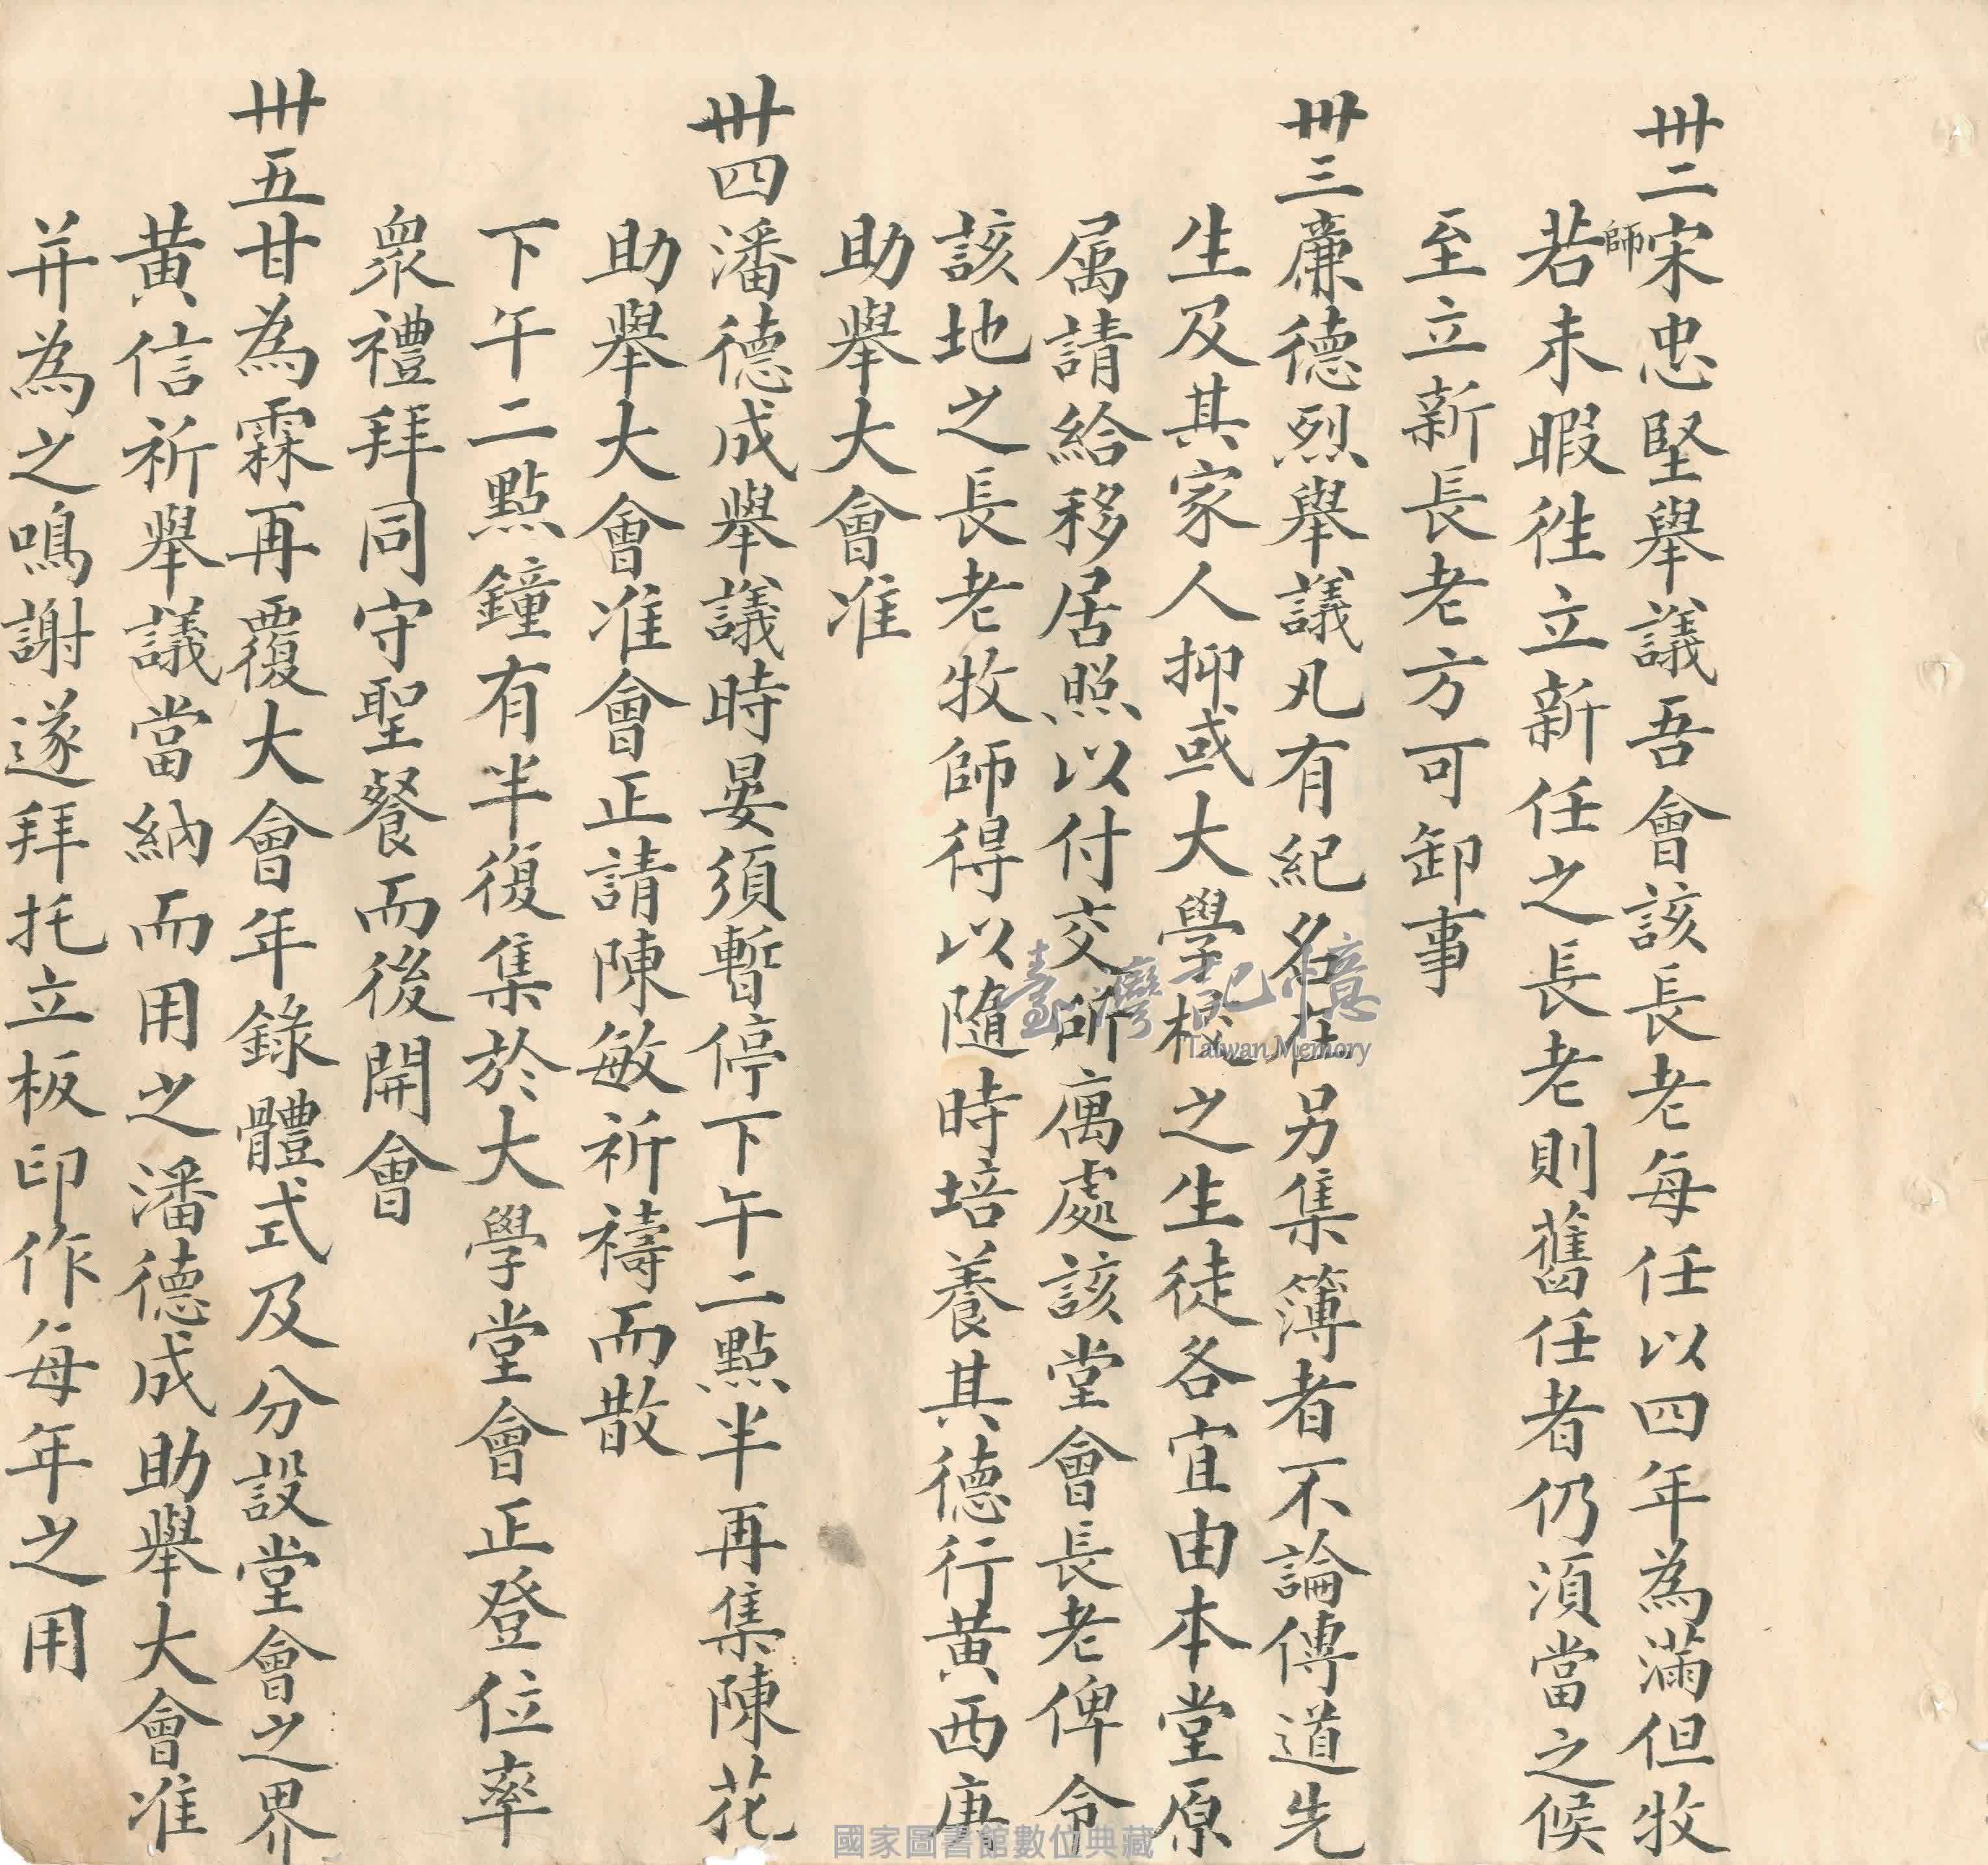 卅二宋忠堅舉議吾會該長老每任以四年為滿但牧
師若未暇徃立新任之長老則舊任者仍須當之候
至立新長老方可卸事
卅三廉德烈舉議凡有紀名在另集簿者不論傳道先
生及其家人抑或大學校之生徒各宜由本堂原
属請給移居照以付交所寓處該堂會長老俾令
該地之長老牧師得以隨時培養其德行黃西庚
助舉大會准
卅四潘德成舉議時晏須暫停下午二點半再集陳花
助舉大會准會正請陳敏祈禱而散
下午二點鐘有半復集於大學堂會正登位率
眾禮拜同守聖餐而後開會
卅五甘為霖再覆大會年錄體式及分設堂會之界
黃信祈舉議當納而用之潘德成助舉大會准
并為之鳴謝遂拜托立板印作每年之用
臺灣記憶
Taiwan Memory
國家圖書館數位典藏